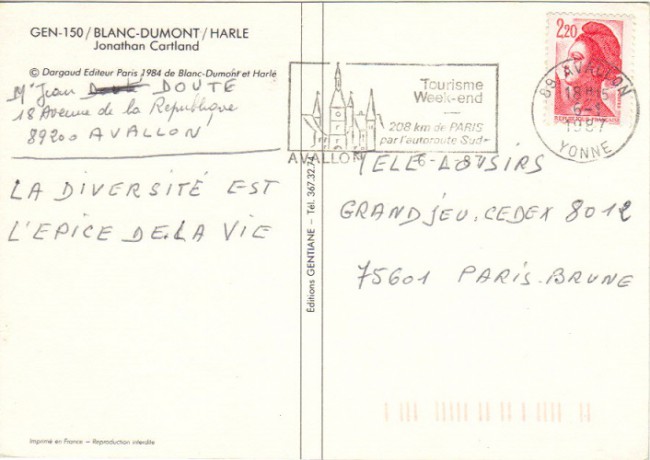 GEN-150/BLANC-DUMONT/HARLE
Jonathan Cartland
© Dargaud Editeur Paris 1984 de Blanc-Dumont et Harlé
Mr Jean Douté DOUTE
18 Avenue de la République
89200 AVALLON
LA DIVERSITÉ EST
L'EPICE DE.LA VIE
Imprimé en France – Reproduction interdite
Editions GENTIANE – Tél. 367.32.74
AVALLON
Tourisme
Week-end
208 km de PARIS
par l'autoroute Sud
2,20
89 AVALLON
18H15
6-1
1987
YONNE
6-1-87
TELE-LOISIRS
GRAND JEU.CEDEX 8012
75601 PARIS.BRUNE